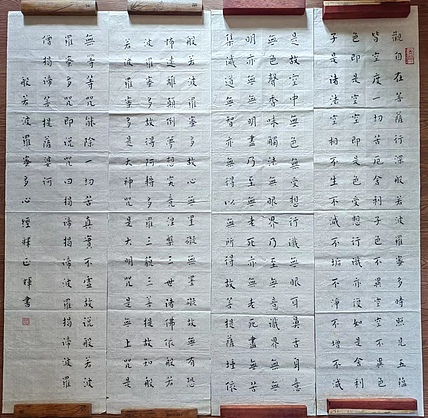 觀自在菩薩行深般若波羅蜜多時照見五蘊
皆空度一切苦厄舍利子色不異空空不異色
色即是空空即是色受想行識亦復如是舍利
子是諸法空相不生不滅不垢不淨不增不減
是故空中無色無受想行識無眼耳鼻舌身意
無色聲香味觸法無眼界乃至無意識界無無
明亦無無明盡乃至無老死亦無老死盡無苦
集滅道無智亦無得以無所得故菩提薩埵依
般若波羅蜜多故心無罣礙無罣礙故無有恐
怖遠離顛倒夢想究竟涅槃三世諸佛依般若
波羅蜜多故得阿耨多羅三藐三菩提故知般
若波羅蜜多是大神咒是大明咒是無上咒是
無等等咒能除一切苦真實不虛故說般若波
羅蜜多咒即說咒曰揭諦揭諦波羅揭諦波羅
僧揭諦菩提薩婆訶
般若波羅蜜多心經 正暉書